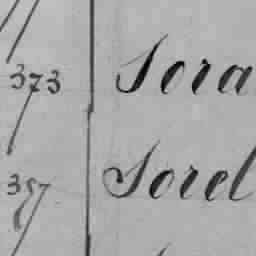 373 Sora
357 Sorel